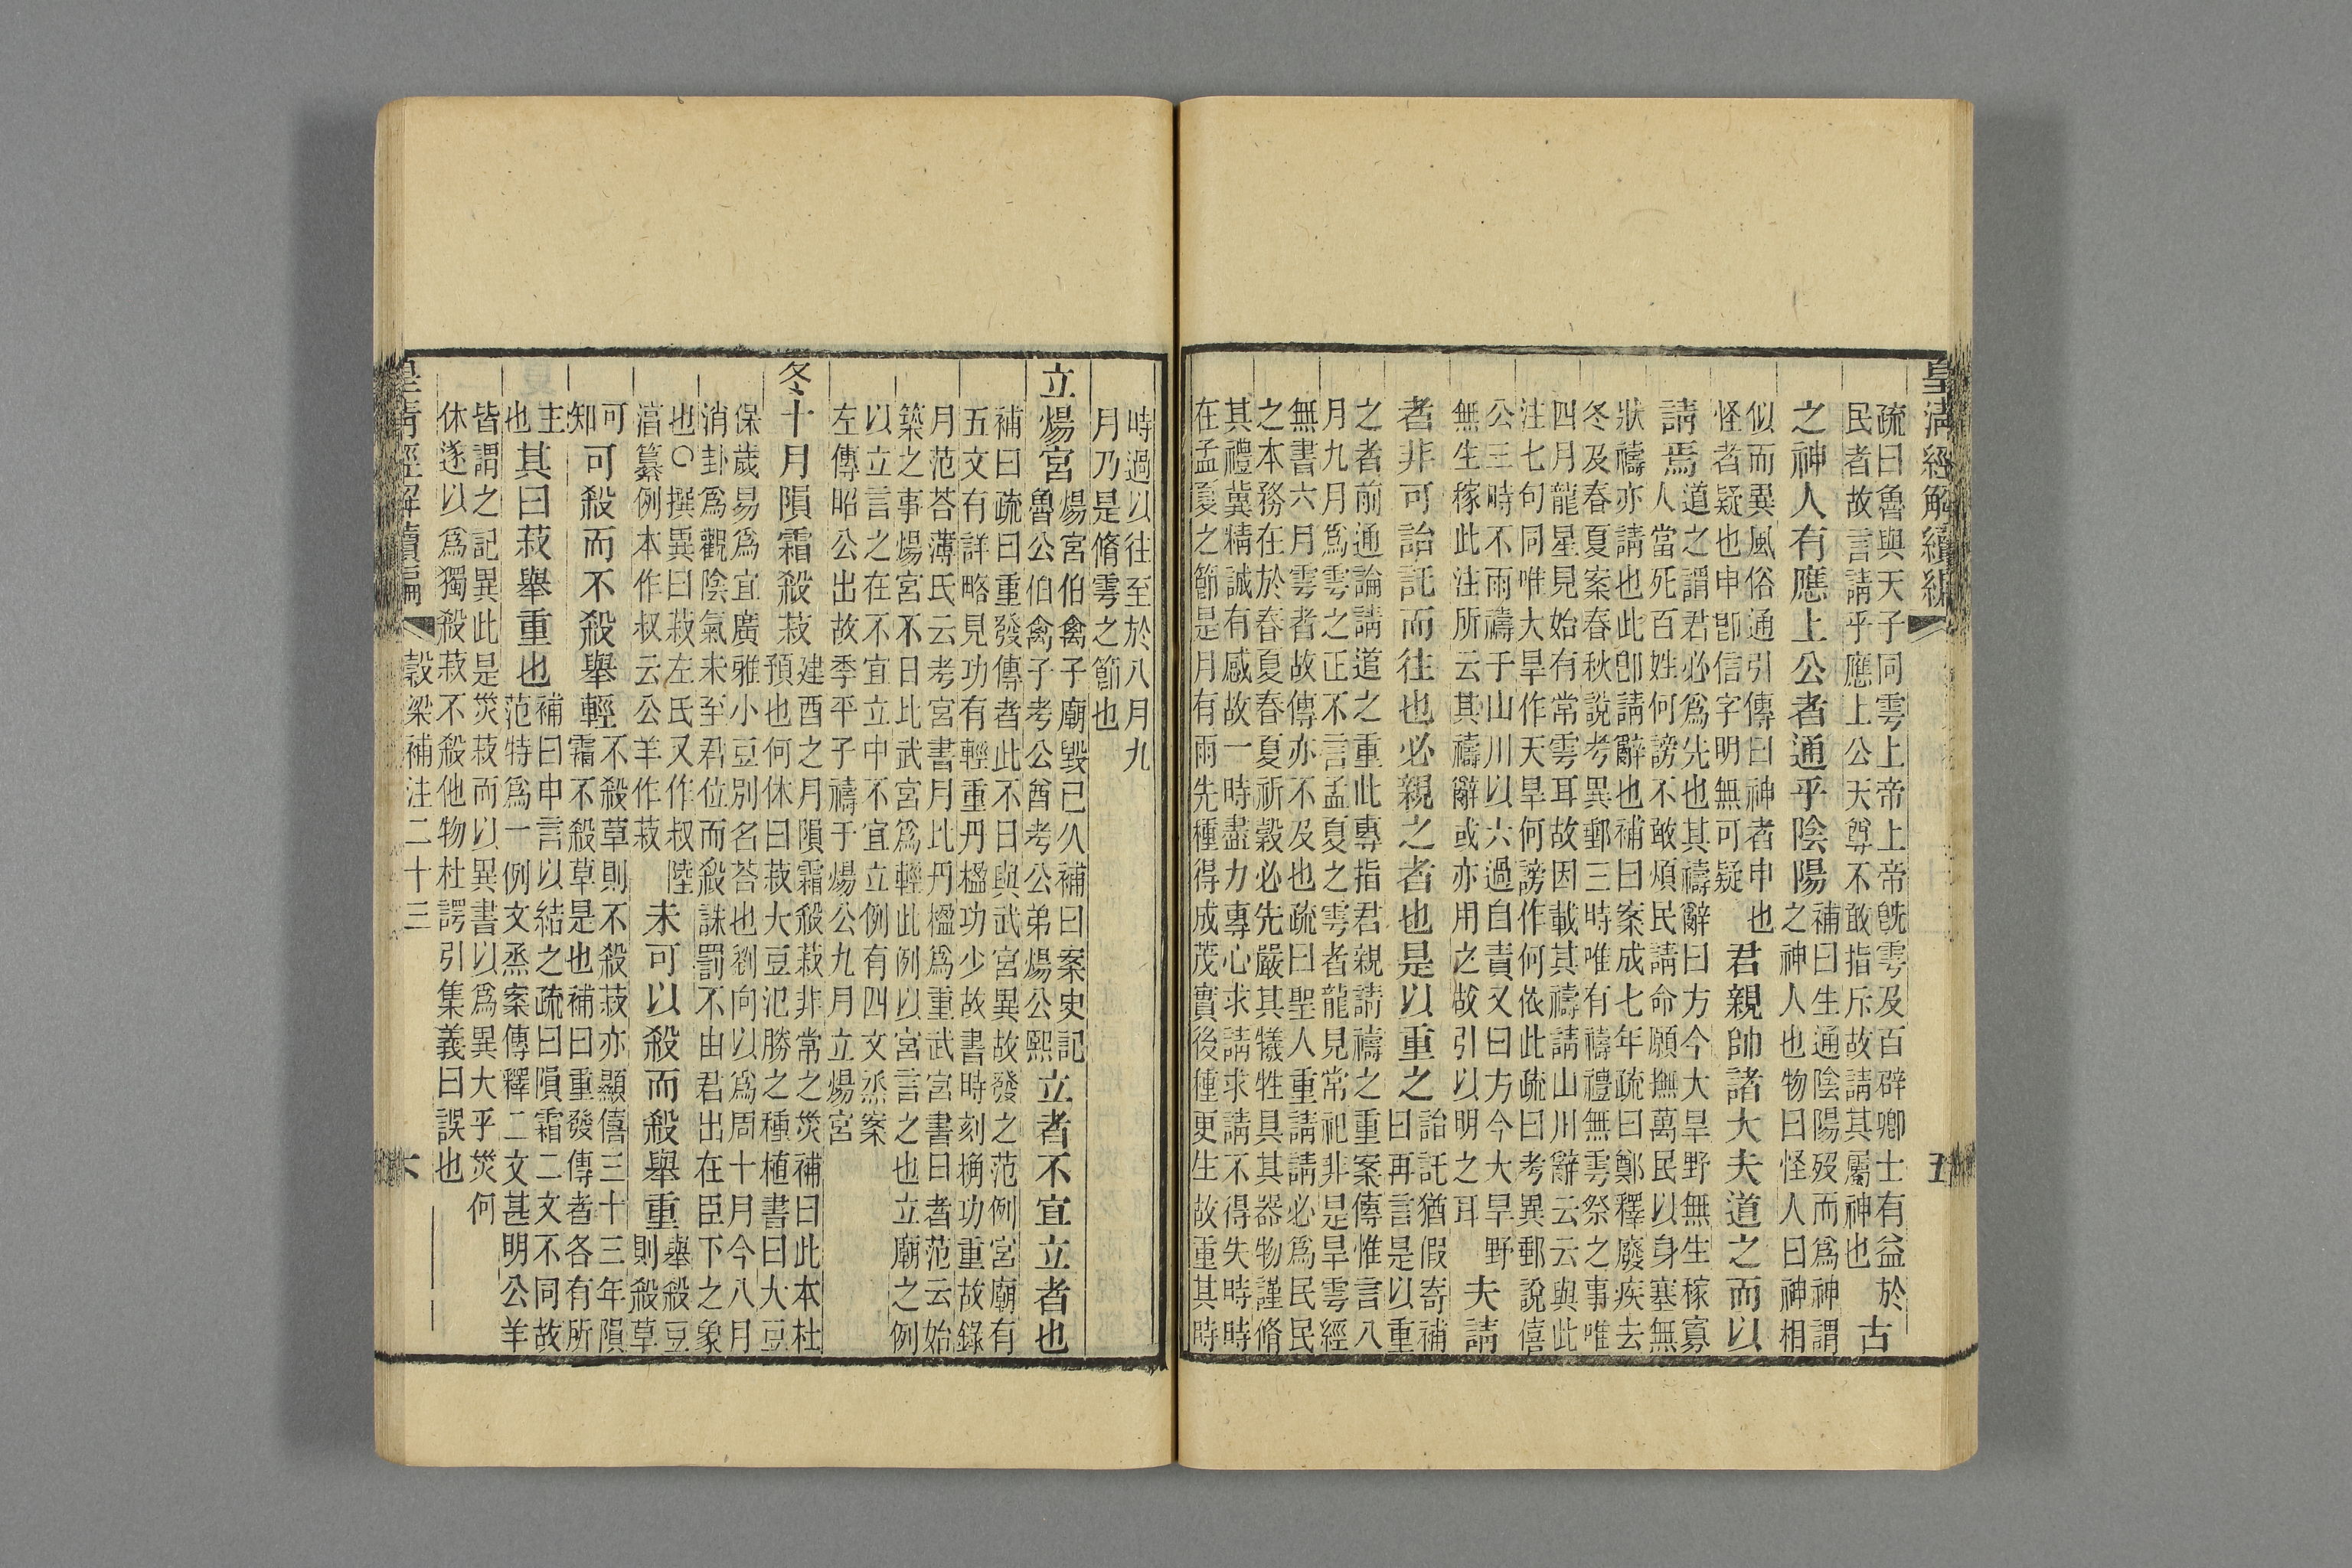 皇清經解續編
五
疏曰魯與天子同雩上帝上帝旣雩及百辟卿士有益於
民者故言請乎應上公天尊不敢指斥故請其屬神也
古
之神人有應上公者通乎陰陽
補曰生通陰陽歿而爲神謂
之神人也物曰怪人曰神相
似而異風俗通引傳曰神者申也
怪者疑也申卽信字明無可疑
君親帥諸大夫道之而以
請焉
道之謂君必爲先也其禱辭曰方今大旱野無生稼寡
人當死百姓何謗不敢煩民請命願撫萬民以身塞無
狀禱亦請也此卽請辭也補曰案成七年疏曰鄭釋廢疾去
冬及春夏案春秋說考異郵三時唯有禱禮無雩祭之事唯
四月龍星見始有常雩耳故因載其禱請山川辭云云與此
注七句同唯大旱作天旱何謗作何依此疏曰考異郵說僖
公三時不雨禱于山川以六過自責又曰方今大旱野
無生稼此注所云其禱辭或亦用之故引以明之耳
夫請
者非可詒託而往也必親之者也是以重之
詒託猶假寄補
曰再言是以重
之者前通論請道之重此專指君親請禱之重案傳惟言八
月九月爲雩之正不言孟夏之雩者龍見常祀非是旱雩經
無書六月雩者故傳亦不及也疏曰聖人重請請必爲民民
之本務在於春夏春夏祈穀必先嚴其犧牲具其器物謹脩
其禮冀精誠有感故一時盡力專心求請求請不得失時時
在孟夏之節是月有雨先種得成茂實後種更生故重其時
時過以往至於八月九
月乃是脩雩之節也
立煬宮
煬宮伯禽子廟毀已久補曰案史記
魯公伯禽子考公酋考公弟煬公熙
立者不宜立者也
補曰疏曰重發傳者此不日與武宮異故發之范例宮廟有
五文有詳略見功有輕重丹楹功少故書時刻桷功重故錄
月范荅薄氏云考宮書月比丹楹爲重武宮書日者范云始
築之事煬宮不日比武宮爲輕此例以宮言之也立廟之例
以立言之在不宜立中不宜立例有四文烝案
左傳昭公出故季平子禱于煬公九月立煬宮
冬十月隕霜殺菽
建酉之月隕霜殺菽非常之災補曰此本杜
預也何休曰菽大豆氾勝之種植書曰大豆
保歲易爲宜廣雅小豆別名荅也劉向以爲周十月今八月
消卦爲觀陰氣未至君位而殺誅罰不由君出在臣下之象
也〇撰異曰菽左氏又作叔陸
淳纂例本作叔云公羊作菽
未可以殺而殺舉重
舉殺豆
則殺草
可
知
可殺而不殺舉輕
不殺草則不殺菽亦顯僖三十三年隕
霜不殺草是也補曰重發傳者各有所
主
也
其曰菽舉重也
補曰申言以結之疏曰隕霜二文不同故
范特爲一例文烝案傳釋二文甚明公羊
皆謂之記異此是災菽而以異書以爲異大乎災何
休遂以爲獨殺菽不殺他物杜諤引集義曰誤也
皇清經解續編
穀梁補注二十三
六